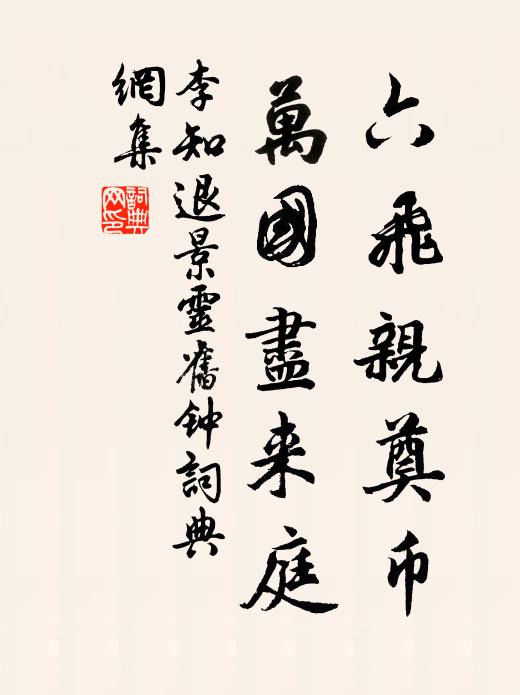 六飛親奠币
萬國盡来庭
李知退景靈舊钟詞典
網集
詞典
网印